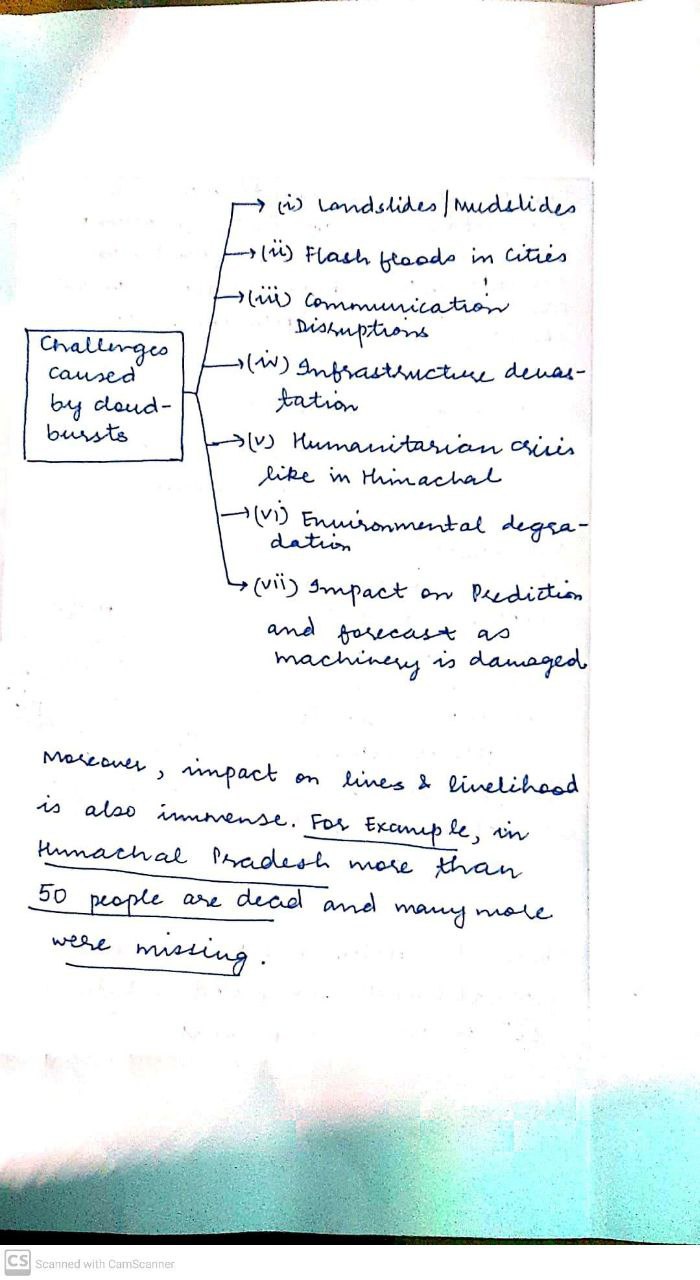 (i) Landslides/Mudslides
(ii) Flash floods in cities
(iii) Communication
Disruptions
Challenges
caused
by cloud-
bursts
(iv) Infrastructure devas-
tation
(v) Humanitarian crisis
like in Himachal
(vi) Environmental degra-
dation
(vii) Impact on Prediction
and forecast as
machinery is damaged
Moreover, impact on lives & livelihood
is also immense. For Example, in
Himachal Pradesh more than
50 people are dead and many more
were missing.
CS Scanned with CamScanner